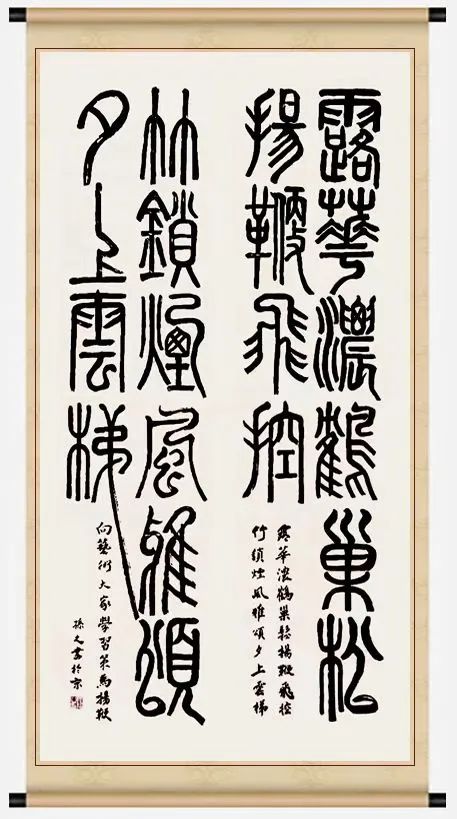 露華濃鶴巢松
揚鞭飛控
露華濃鶴巢鬆揚鞭飛控
竹鎖煙風雅頌夕上雲梯
竹鎖煙風雅頌
夕上雲梯
向藝術大家學習策馬揚鞭
孫文書於京